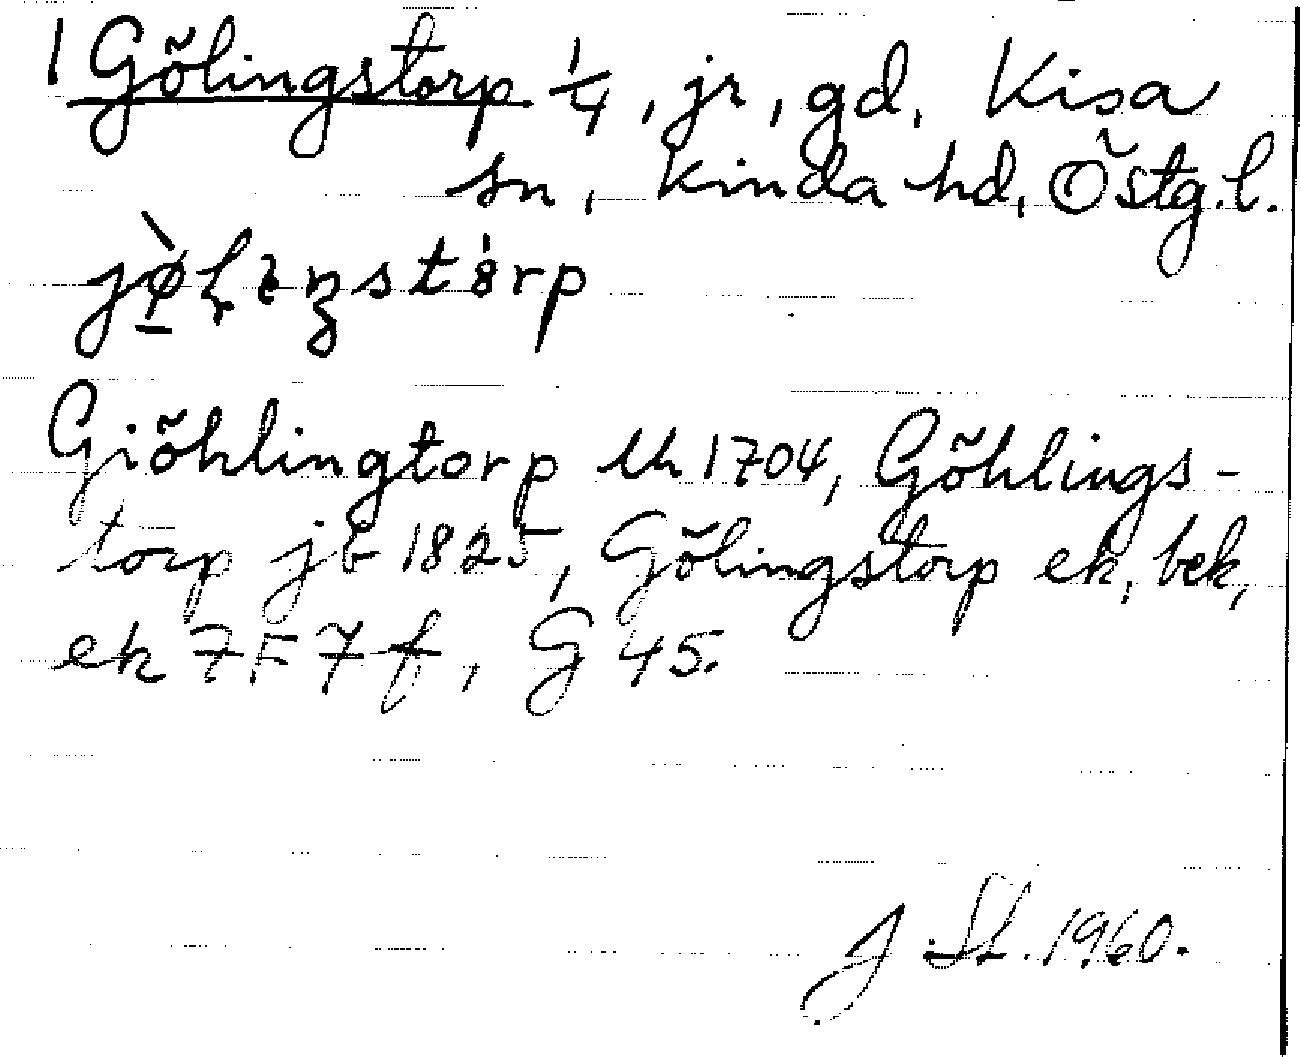 1 Gölingstorp 1/4, jr, gd, Kisa
sn, Kinda hd, Östg.l.
Giöhlingtorp Uh 1704, Göhlings-
torp jb 1825, Gölingstorp ek, bek,
ek 7F7f, G 45.
J. St. 1960.